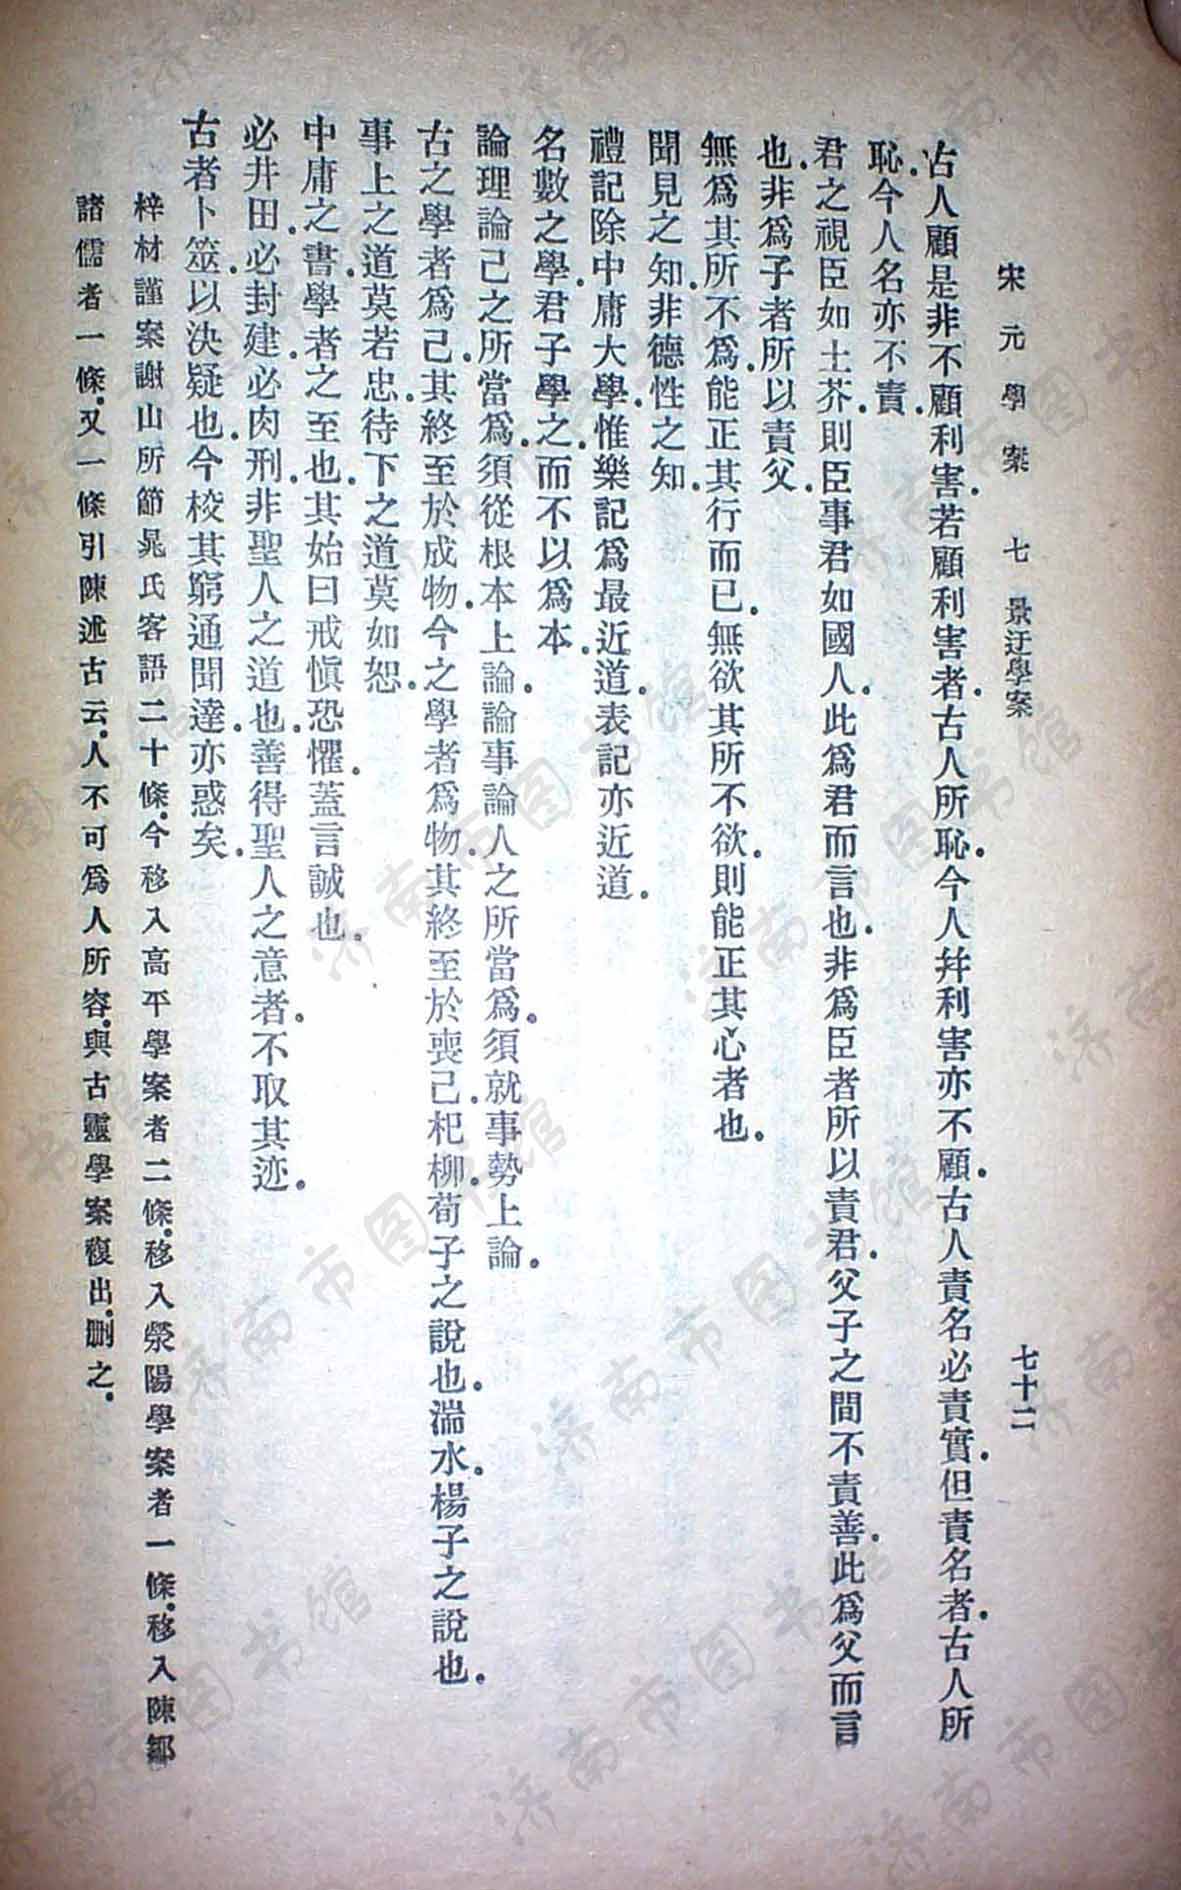 宋元學案 七 景迂學案 七十二
古人顧是非不顧利害.若顧利害者.古人所恥.今人幷利害亦不顧.古人責名必責實.但責名者.古人所
恥.今人名亦不責.
君之視臣如土芥.則臣事君如國人.此爲君而言也.非爲臣者所以責君.父子之間不責善.此爲父而言
也.非爲子者所以責父.
無爲其所不爲.能正其行而已.無欲其所不欲.則能正其心者也.
聞見之知.非德性之知.
禮記除中庸大學.惟樂記爲最近道.表記亦近道.
名數之學.君子學之.而不以爲本.
論理論己之所當爲.須從根本上論.論事論人之所當爲.須就事勢上論.
古之學者爲己.其終至於成物.今之學者爲物.其終至於喪己.杞柳.荀子之說也.湍水.楊子之說也.
事上之道莫若忠.待下之道莫如恕.
中庸之書.學者之至也.其始曰戒愼恐懼.蓋言誠也.
必井田.必封建.必肉刑.非聖人之道也.善得聖人之意者.不取其迹.
古者卜筮.以決疑也.今校其窮通聞達.亦惑矣.
梓材謹案謝山所節晁氏客語二十條.今移入高平學案者二條.移入滎陽學案者一條.移入陳鄒
諸儒者一條.又一條引陳述古云.人不可爲人所容.與古靈學案複出.刪之.
济南市图书馆